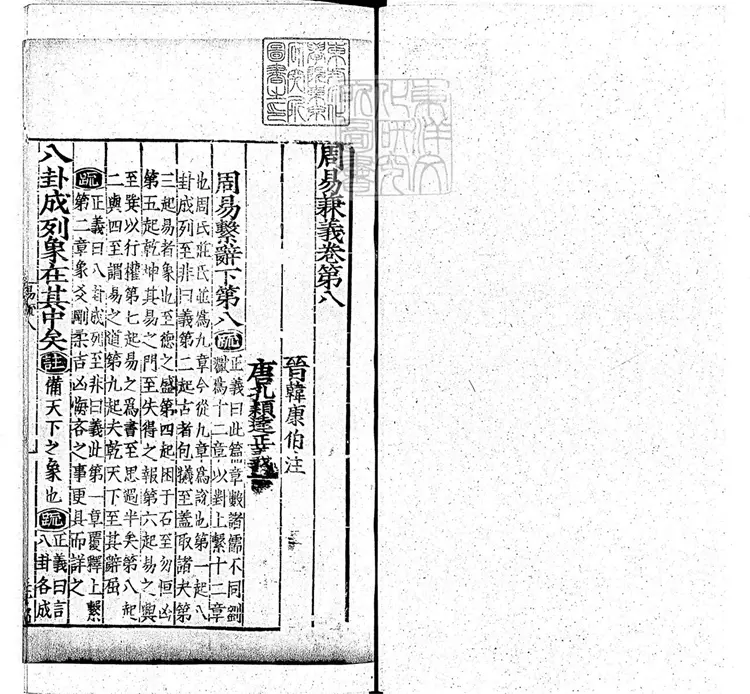 東方文化
學院東京
研究所
圖書之印
東洋文
化研究
所圖書
周易兼義卷第八
晉韓康伯注
唐孔穎達正義
周易繫辭下第八疏正義曰此篇章數諸儒不同劉
瓛爲十二章以對上繫十二章
也周氏莊氏並爲九章今從九章爲說也第一起八
卦成列至非曰義第二起古者包犧至蓋取諸夬第
三起易者象也至德之盛第四起困于石至勿恒凶
第五起乾坤其易之門至失得之報第六起易之興
至巽以行權第七起易之爲書至思過半矣第八起
二與四至謂易之道第九起夫乾天下至其辭屈
疏正義曰八卦成列至非曰義此第一章覆釋上繫
第二章象爻剛柔吉凶悔吝之事更具而詳之
八卦成列象在其中矣註備天下之象也疏正義曰言
八卦各成